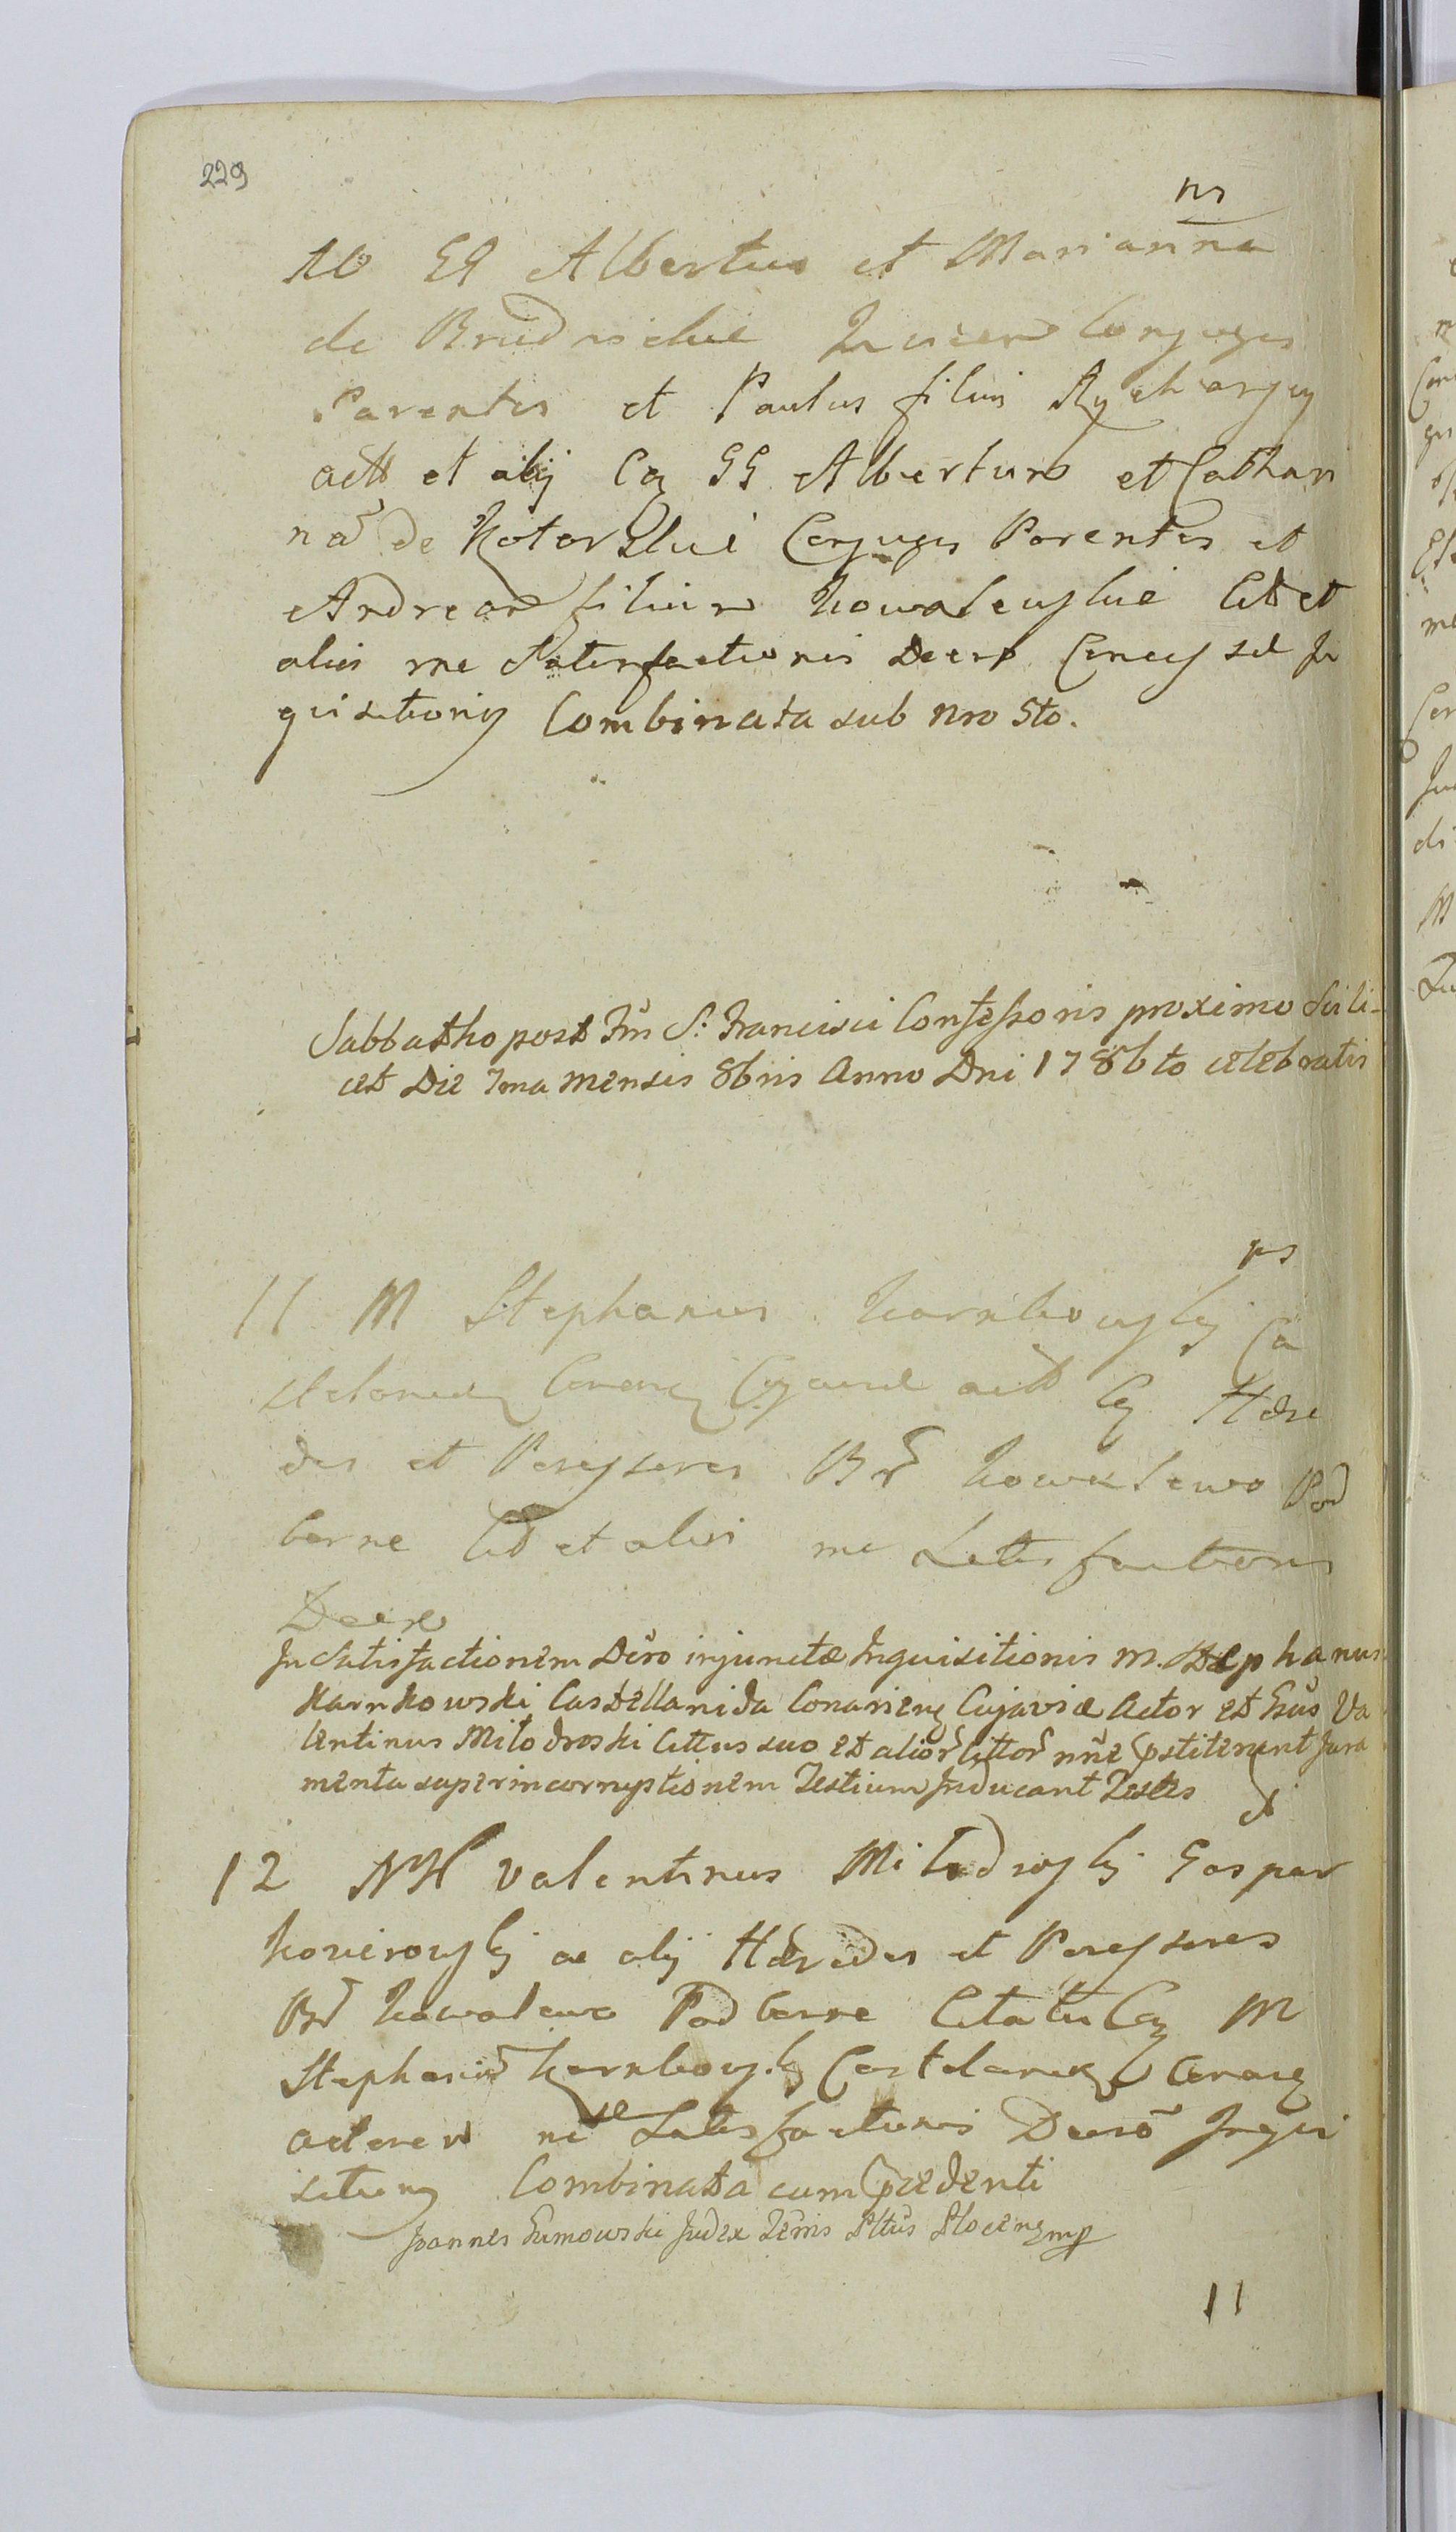 229
ns
10 GG Albertus et Marianna
de Brudnickie Conjuges
Parentes et Paulus filius Rycharscy
actt et alij Ca GG Albertum et Cathari
nã de Kotarskie Conjuges Parentes et
Andream filium Kowalewskie Citt et
alios me Satisfactionis Decro In
quisitionis Combinata sub nro 5to.
Sabbatho post Fm S: Francisci Confessoris proximo Scili-
cet Die 7ma mensis 8bris Anno Dni 1786to celebratis
ns
11 M Stephanus Karnkowski Ca
Cujaviæ actt Ca Hære
des et Possessores Br Kowalewo Pod
borne Citt et alios me Satisfactionis
Decro
In Satisfactionem Dcro injunctæ Inquisitionis M. Stephanus
Karnkowski Castellanida Conarieng Cujaviæ Actor et Gsus Va
lentinus Milodroski Cittus suo et alior Cittor nñe pstiterunt Jura
menta super incorruptionem Testium Inducant Testes
12 NH Valentinus Milodroski Gaspar
ac alij Hæredes et Possessores
Br Kowalewo Podborne Citati Ca M
Stephanũ Karnkowski
actorem Satisfactionis Decro Inqui
sitionis Combinata cum pcedenti
Joannes Gumowski Judex Terris Pltus Plocens mp
11